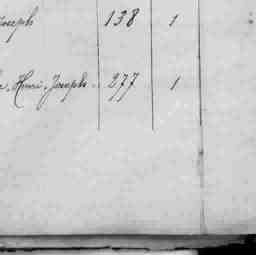 Joseph 138 1
Henri, Joseph 277 1